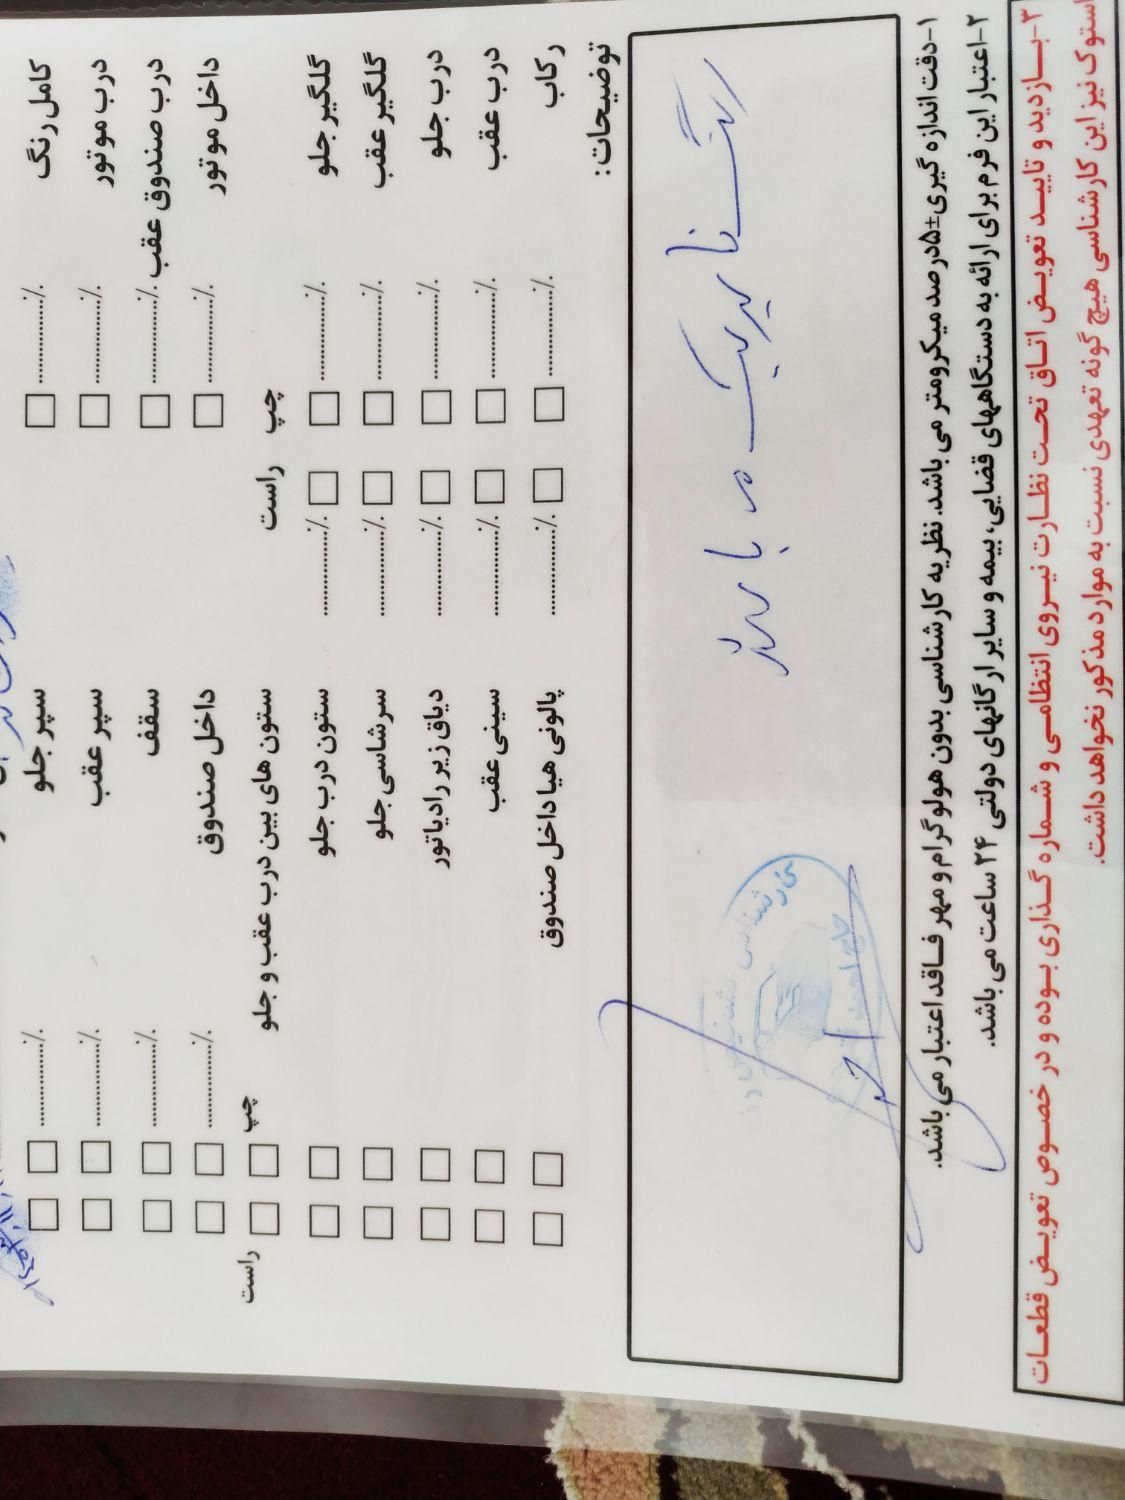 کامل رنگ ............٪ □ سپر جلو ............٪ □ □
درب موتور ............٪ □ سپر عقب ............٪ □ □
درب صندوق عقب ............٪ □ سقف ............٪ □ □
داخل موتور ............٪ □ داخل صندوق ............٪ □ □
چپ راست ستون های بین درب عقب و جلو چپ □ □ راست
گلگیر جلو ............٪ □ □ ............٪ ستون درب جلو □ □
گلگیر عقب ............٪ □ □ ............٪ سرشاسی جلو □ □
درب جلو ............٪ □ □ ............٪ دیاق زیر رادیاتور □ □
درب عقب ............٪ □ □ ............٪ سینی عقب □ □
رکاب ............٪ □ □ ............٪ پالونی هیا داخل صندوق □ □
توضیحات:
۱-دقت اندازه گیری±۵درصد میکرومتر می باشد. نظریه کارشناسی بدون هولوگرام و مهر فاقد اعتبار می باشد.
۲-اعتبار این فرم برای ارائه به دستگاههای قضایی، بیمه و سایر ارگانهای دولتی ۲۴ ساعت می باشد.
۳-بازدید و تایید تعویض اتاق تحت نظارت نیروی انتظامی و شماره گذاری بوده و در خصوص تعویض قطعات
استوک نیز این کارشناسی هیچ گونه تعهدی نسبت به موارد مذکور نخواهد داشت.